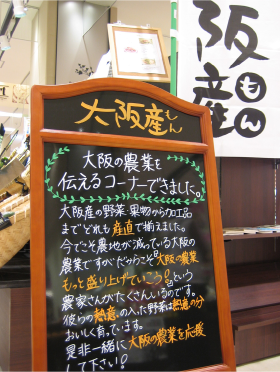 大阪産もん
大阪の農業を
伝えるコーナーできました。
大阪産の野菜、果物から加工品
までどれも産直で揃えました。
今でこそ農地が減っている大阪の
農業ですが、だからこそ"大阪の農業
もっと盛り上げていこう!"という
農家さんがたくさんいるのです。
彼らの熱意の入った野菜は熱意の分
おいしく育っています。
是非一緒に大阪の農業を応援
して下さい!
阪産もん